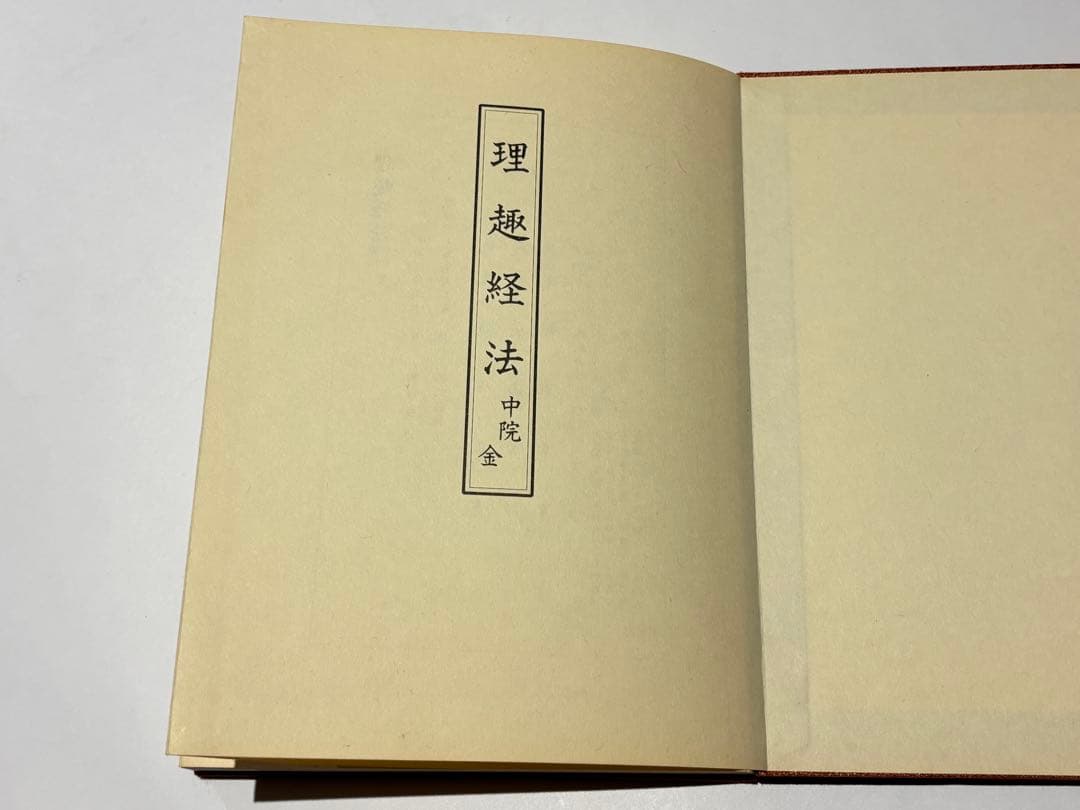 理趣経法
中院
金